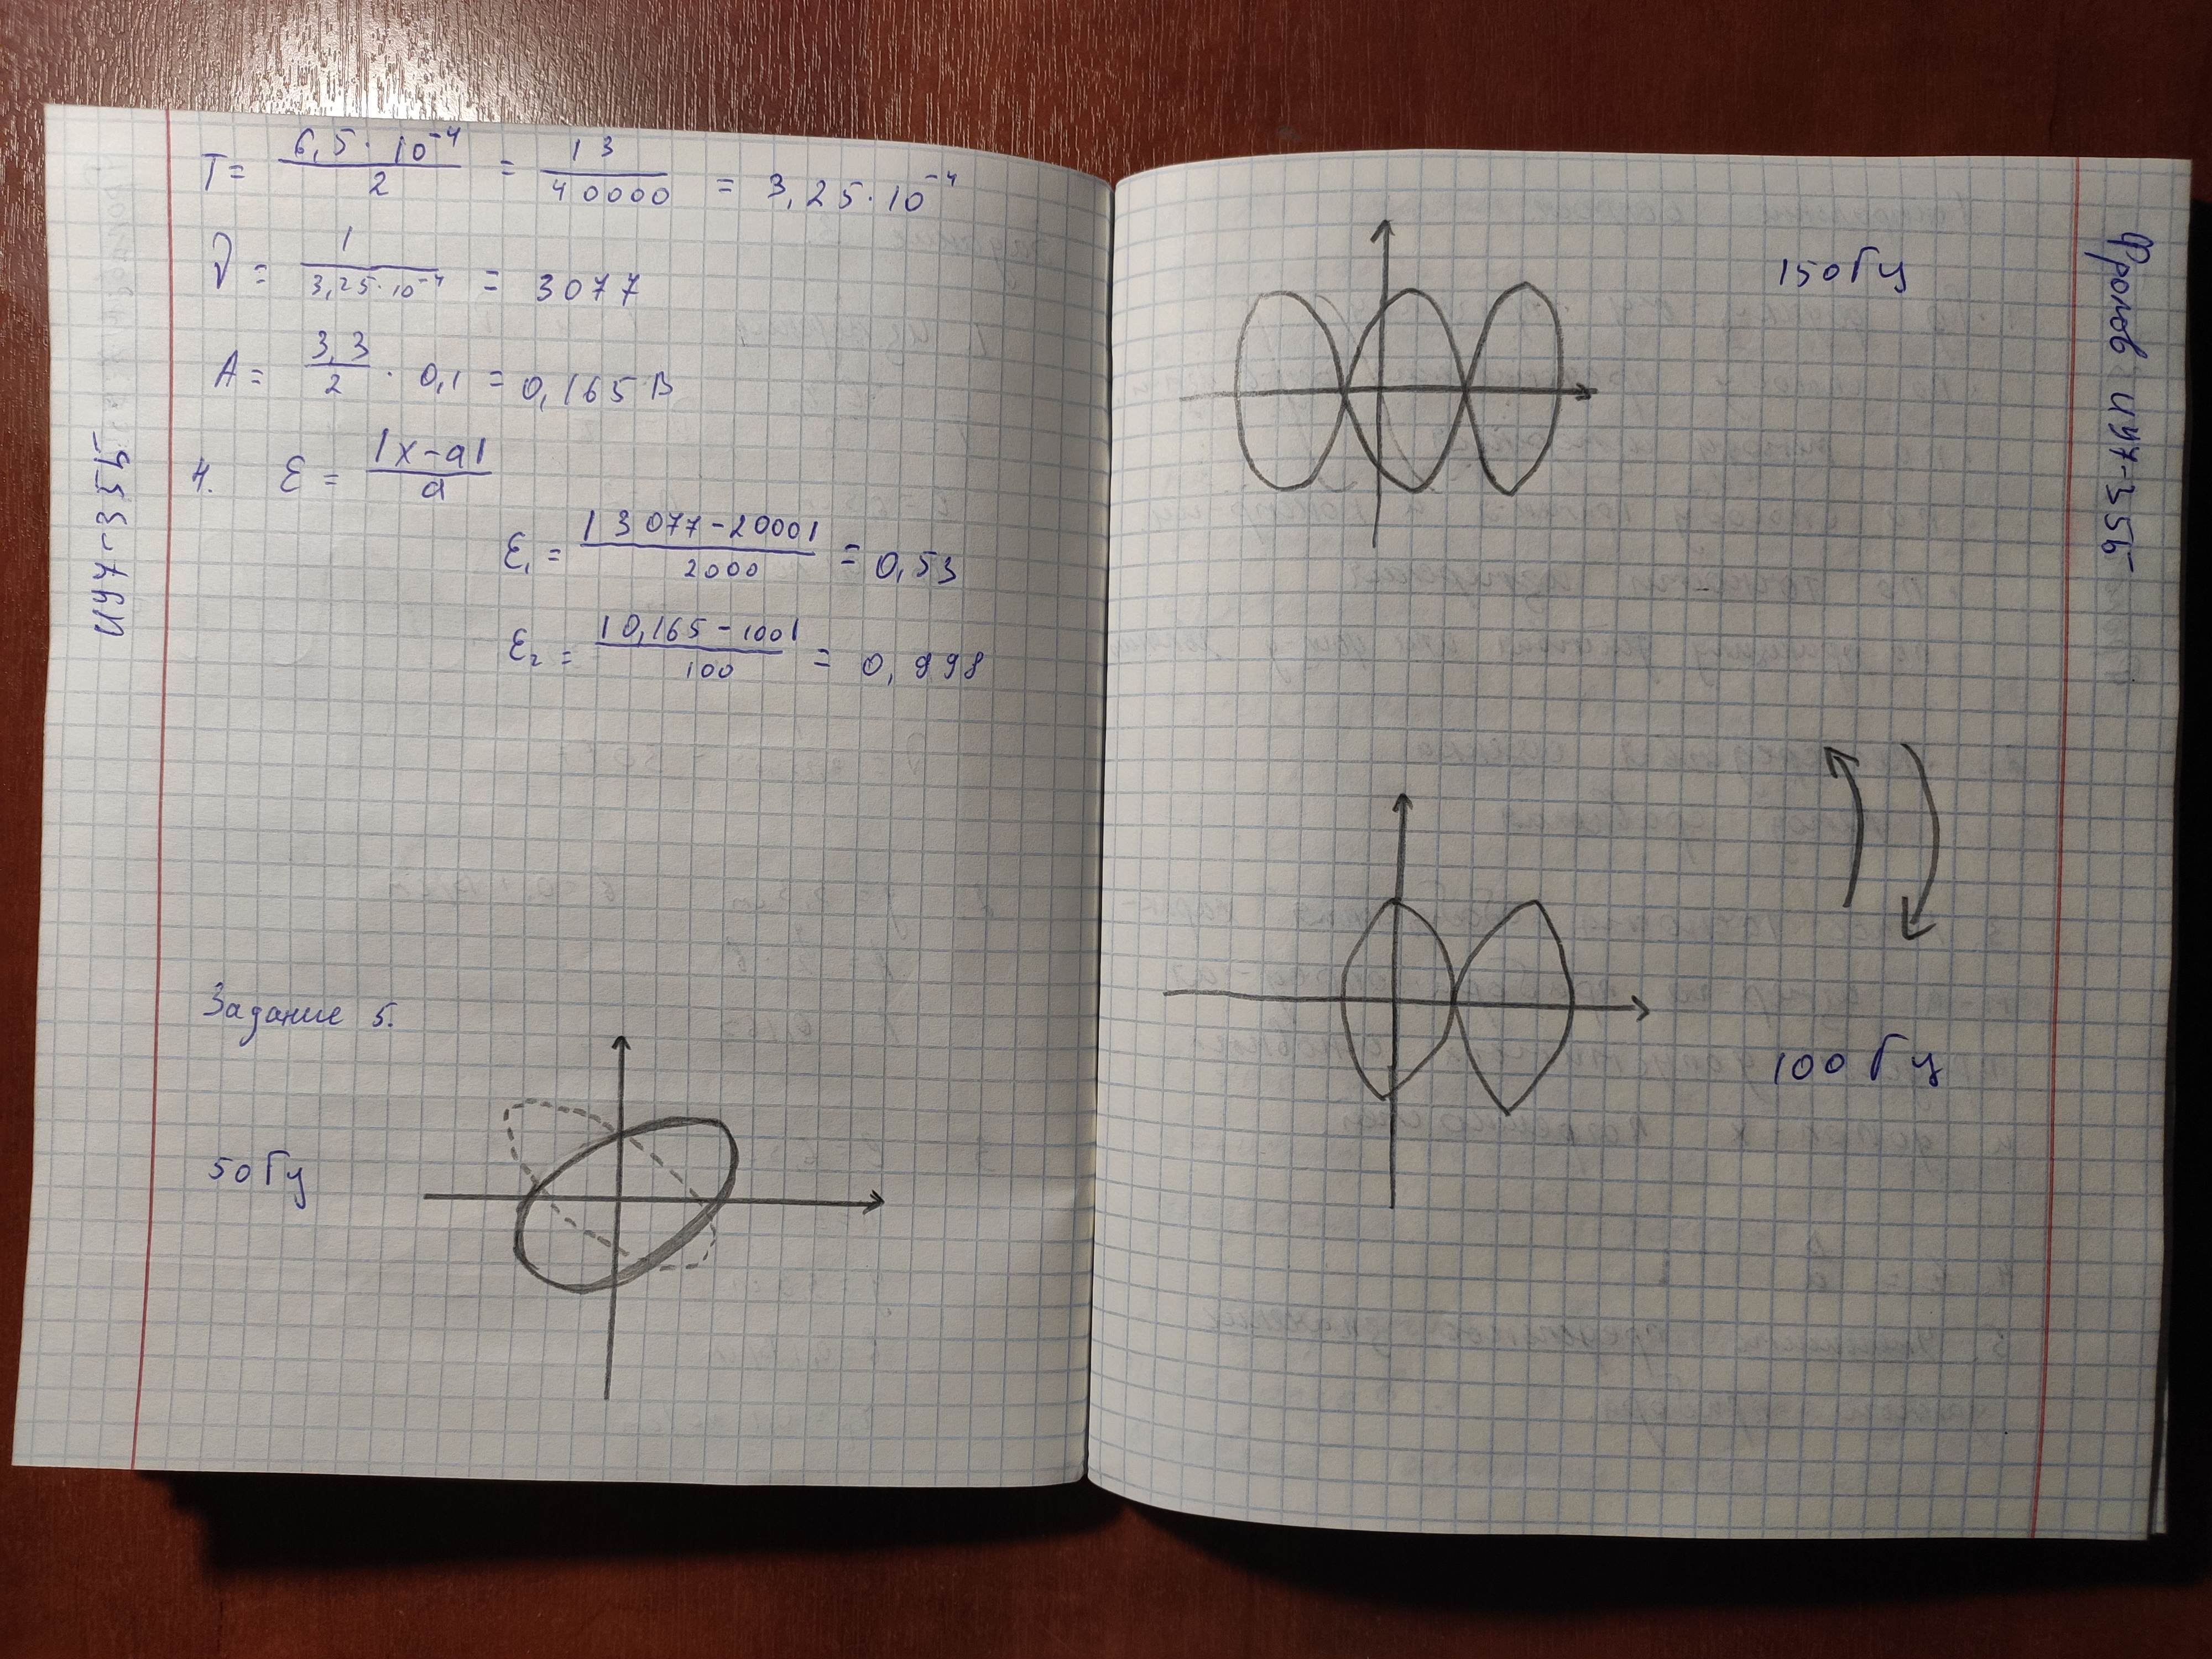 T = 6,5 · 10⁻⁴ / 2 = 13 / 40000 = 3,25 · 10⁻⁴
ν = 1 / 3,25 · 10⁻⁴ = 3077
A = 3,3 / 2 · 0,1 = 0,165 В
4. ε = |x - a| / a
ε₁ = |3077 - 2000| / 2000 = 0,53
ε₂ = |0,165 - 100| / 100 = 0,998
Задание 5.
50 Гц
ИУ7-35Б
150 Гц
100 Гц
Фролов ИУ7-35Б